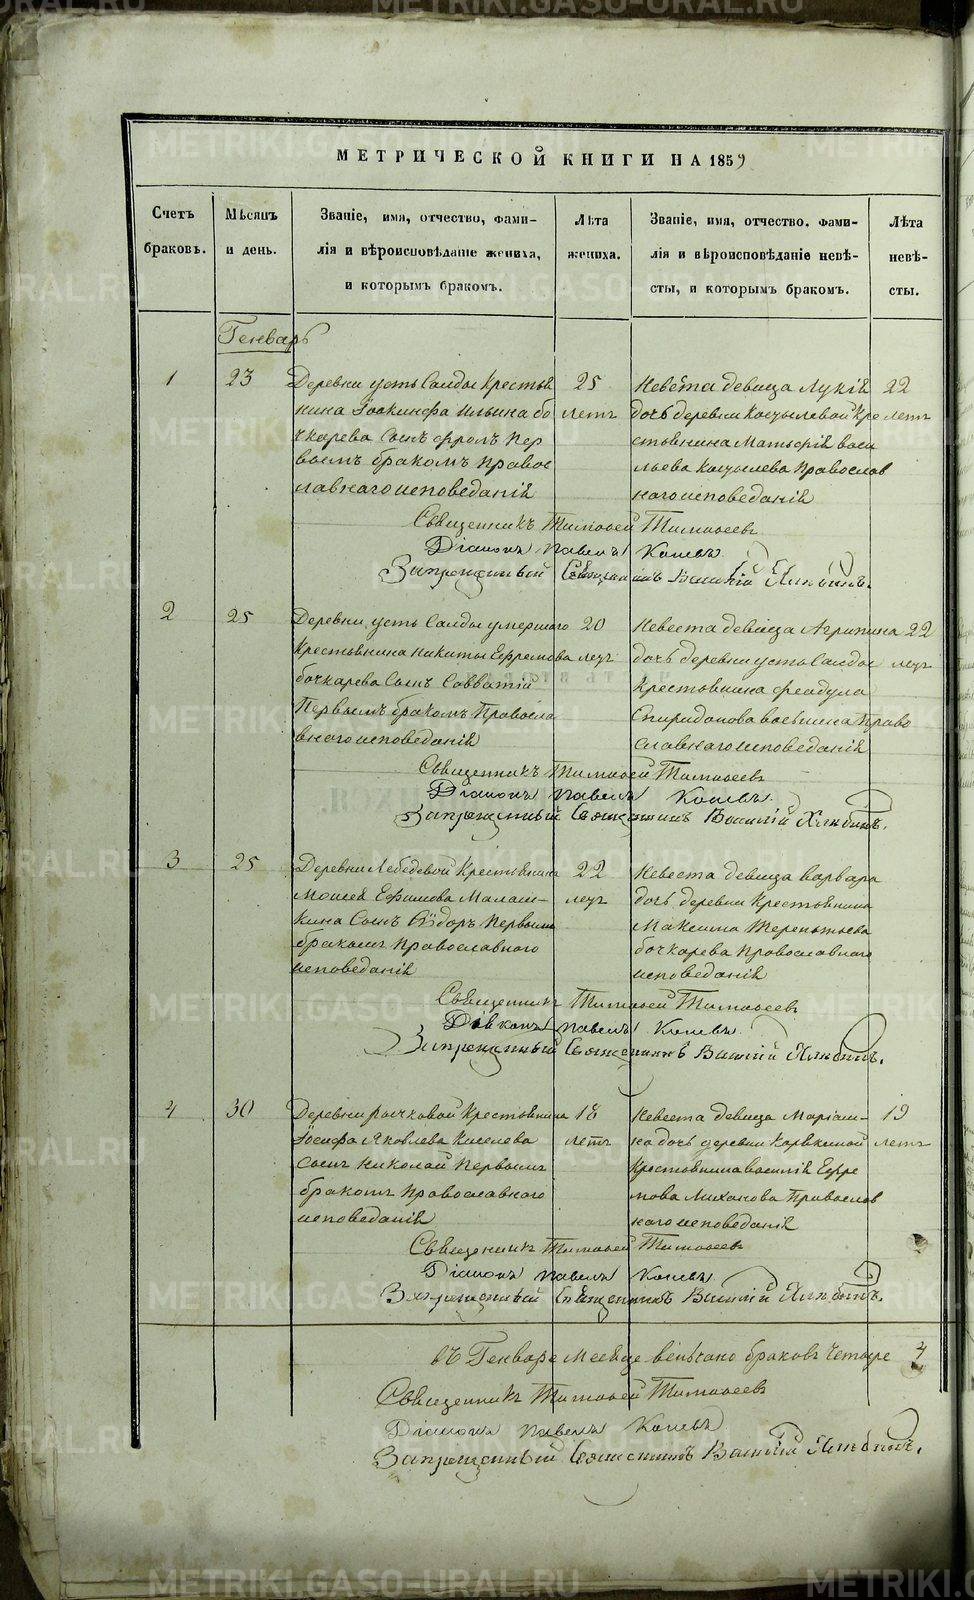 МЕТРИЧЕСКОЙ КНИГИ НА 1859
Счетъ браковъ.
Мѣсяцъ и день.
Званіе, имя, отчество, фами-
лія и вѣроисповѣданіе жениха,
и которымъ бракомъ.
Лѣта жениха.
Званіе, имя, отчество. фами-
лія и вѣроисповѣданіе невѣ-
сты, и которымъ бракомъ.
Лѣта невѣ-
сты.
Генварь
1
23
Деревни усть Салды Крестья
нина Іоакинфа Ильина бо
чкарева Сынъ Фролъ Пер
вымъ бракомъ Правос
лавнаго исповеданія
25
летъ
Невеста девица Лукія
дочь деревни Косылевой Кре
стьянина Матьфія васи
льева Косылева Православ
наго исповеданія
22
летъ
Священникъ Тимофей Тимофеевъ
Діаконъ Павелъ
Запрещенный Священникъ Василій
2
25
Деревни усть Салды умершаго
Крестьянина Никиты Ефремова
бочкарева Сынъ Савватій
Первымъ бракомъ Правосла
внаго исповеданія
20
лет
Невеста девица Агрипина
дочь деревни усть Салды
Крестьянина Феадула
Спиридонова Право
славнаго исповеданія
22
лет
Священникъ Тимофей Тимофеевъ
Діаконъ Павелъ
Запрещенный Священникъ Василій
3
25
Деревни Лебедевой Крестьянина
Моисея Ефимова Малаш-
кина Сынъ Ѳёдоръ Первымъ
бракомъ Православного
исповеданія
22
лет
Невеста девица Варвара
дочь деревни Крестьянина
Максима Терентьева
бочкарева Православнаго
исповеданія
Священникъ Тимофей Тимофеевъ
Діаконъ Павелъ
Запрещенный Священникъ Василій
4
30
Деревни Крестьянина
Іосифа Яковлева Киселева
Сынъ Николай Первымъ
бракомъ Православного
исповеданія
18
летъ
Невеста девица Маріам-
на дочь деревни
Крестьянина василія Ефре
мова Православ
наго исповеданія
19
летъ
Священникъ Тимофей Тимофеевъ
Діаконъ Павелъ
Запрещенный Священникъ Василій
въ Генваре Месяце венчано браковъ Четыре 4
Священникъ Тимофей Тимофеевъ
Діаконъ Павелъ
Запрещенный Священникъ Василій
METRIKI.GASO-URAL.RU